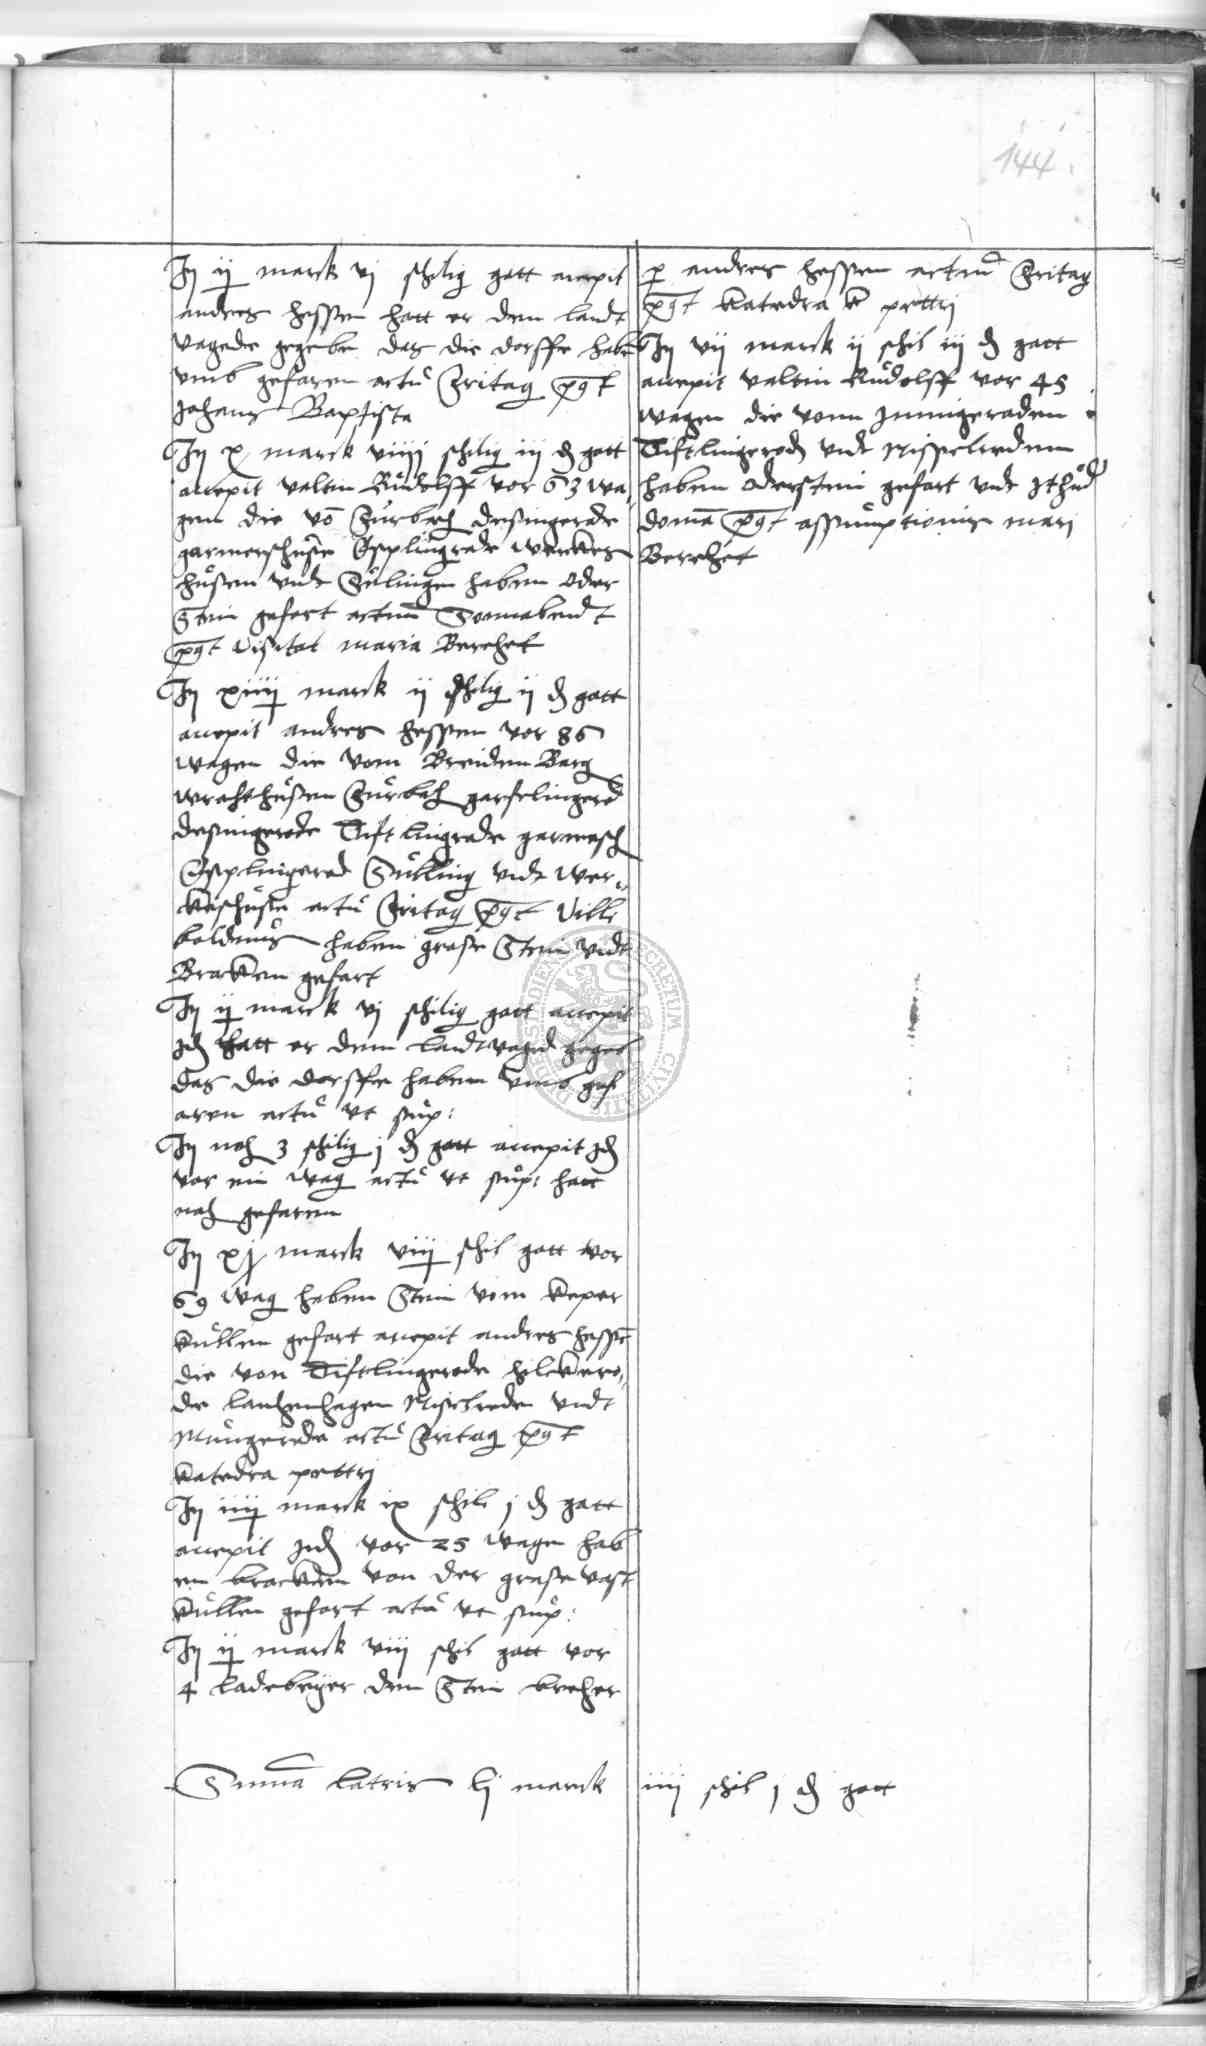 144
It ij marck vj schilig gott accepit
andres hessen hatt er dem landt
vagede gegebe das die dorffe habe
vmb gefaren actu Fritag post
Johans Baptista
It x marck viiij schilig iij d gott
accepit valtin Rudolff vor 63 wa
gen die vo Furbach desingerade
garmershuse Esplingrade werxes
husen vndt Fulingen haben oder
Stein gefort actum Sonnabendt
post visitat maria Berchet
It xiiij marck ij schilig ij d gott
accepit andres hessen vor 86
wagen die vom Breidem Barg
wrakthusen Furbach gerslingerod
desingerode Tistlingrade garmersh
Esplingerod Fulling vndt wer-
keshuse actu Fritag post Villi
baldeus haben grose Stein vndt
Bracken gefart
It ij marck vj schilig gott accepit
Id hatt er dem landtvaged gegeb
das die dorffe haben vmb gef
aren actu vt sup:
It noch 3 schilig j d gott accepit Id
vor ein wag actu vt sup: hatt
noch gefaren
It xj marck viij schil gott vor
69 wag haben Stein vom keper
kullen gefort accepit andres hesse
die von Tistlingerode hilkero
de lantzenhagen Misselrede vndt
Mungerode actu Fritag post
katedra pettri
It iiij marck ix schil j d gott
accepit Id vor 25 wagen hab
en bracken von der grose vast
kullen gefort actu vt sup:
It ij marck viij schil gott vor
4 ladebeyer dem Stein brecher
p andres hessen actum Fritag
post katedra pettri
It vij marck ij schil iij d gott
accepit valtin Rudolff vor 45
wagen die vonn Jmmigeroden
Tistlingerod vndt Misselredenn
haben oderstein gefart vndt
doma post assumptionis mari
Berchet
Suma latris lj marck iiij schil j d gott
SECRETUM CIVITATIS